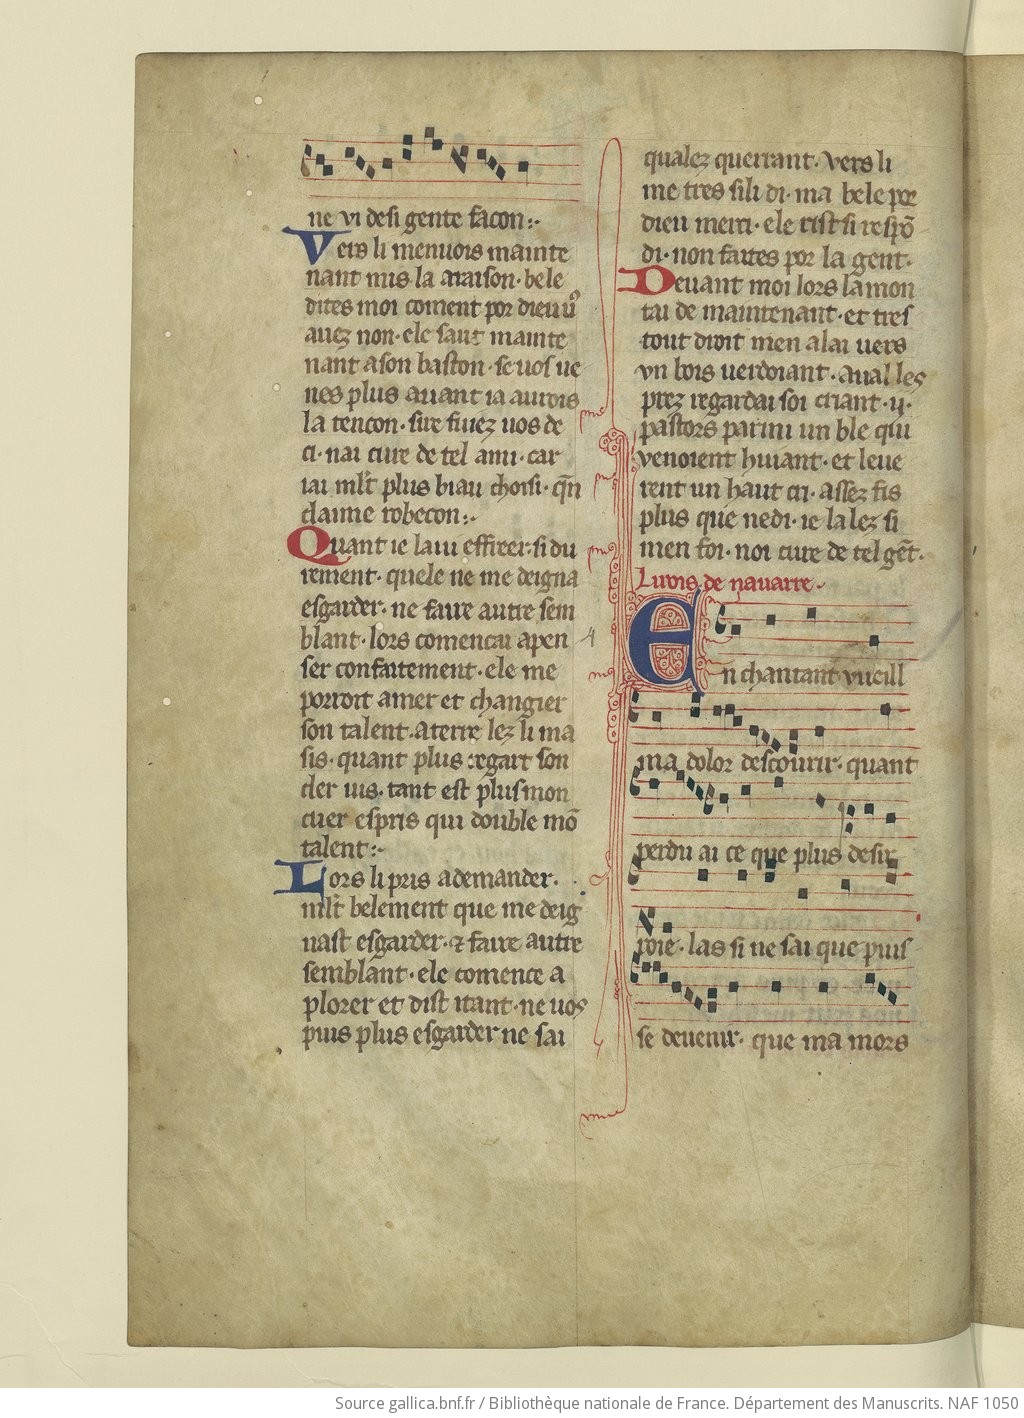 ne vi de si gente facon:·
Vers li menuois mainte
nant mis la a raison· bele
dites moi coment por dieu uos
auez non· ele saut mainte
nant a son baston· se uos ue
nes plus auant ia aurois
la tencon· sire fuiez uos de
ci· nai cure de tel ami· car
iai mlt plus biau choisi· qn
claime robecon:·
Quant ie la ui effreer· si du
rement· quele ne me deigna
esgarder· ne faire autre sem
blant· lors comencai a pen
ser confaitement· ele me
porroit amer et changier
son talent· a terre lez li ma
sis· quant plus regart son
cler uis· tant est plus mon
cuer espris qui double mō
talent:·
Lors li pris a demander·
mlt belement que me deig
nast esgarder· ⁊ faire autre
semblant· ele comence a
plorer et dist itant· ne uos
puis plus esgarder ne sai
qualez querrant· vers li
me tres si li di· ma bele por
dieu merci· ele rist si respō
di· non faites por la gent·
Deuant moi lors la mon
tai de maintenant· et tres
tout droit men alai uers
vn bois uerdoiant· aual les
prez regardai soi criant· ij·
pastors parmi un ble qui
venoient huiant· et leue
rent un haut cri· assez fis
plus que ne di· ie la lez si
men foi· noi cure de tel gēt·
Li rois de nauarre·
En chantant vueill
ma dolor descourir· quant
perdu ai ce que plus desir
roie· las si ne sai que puis
se deuenir· que ma mors